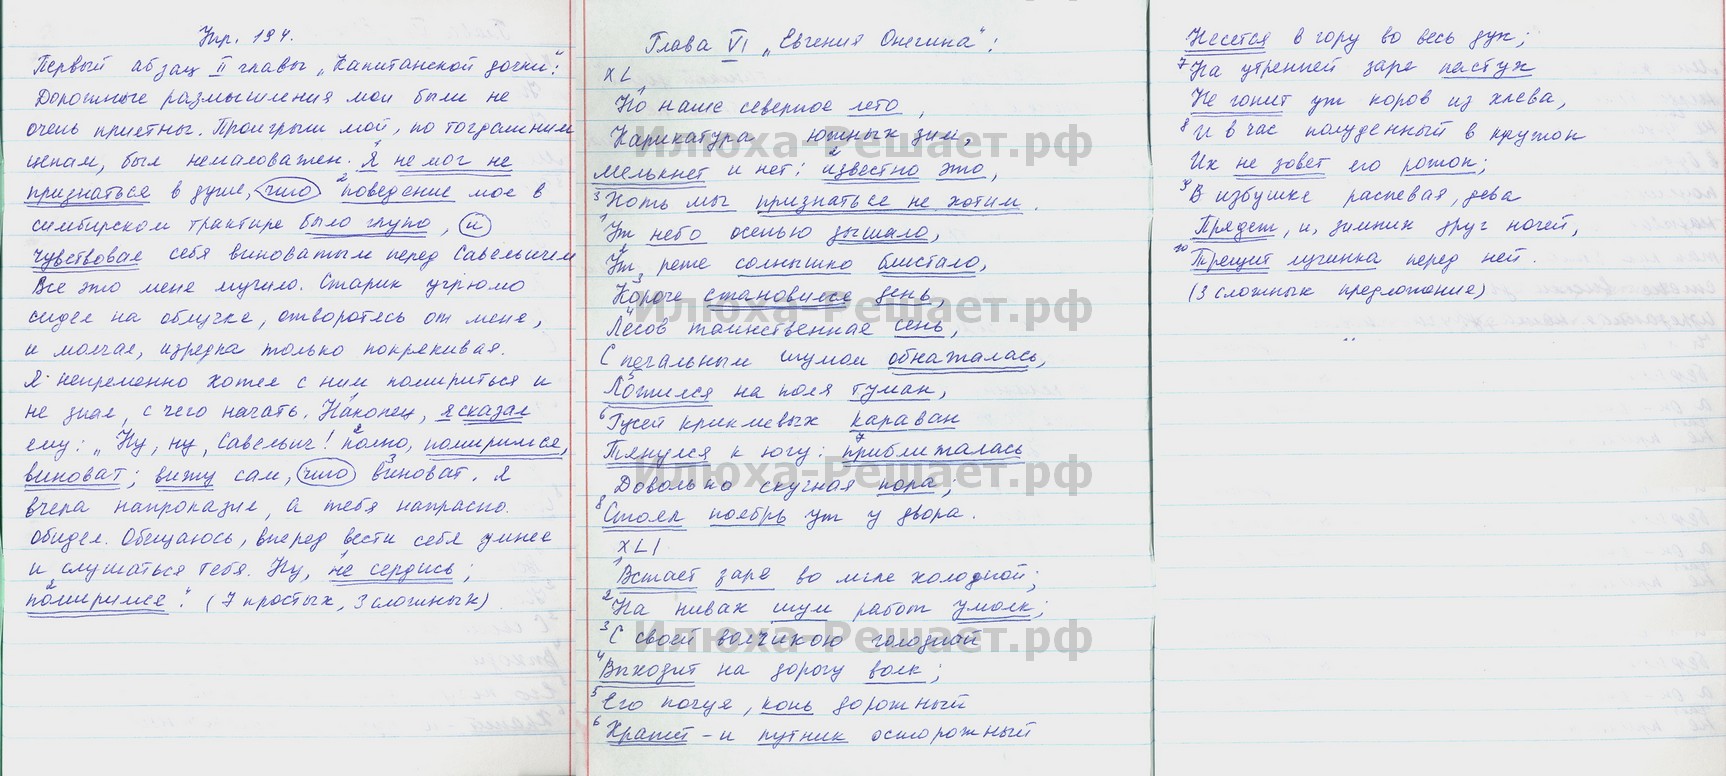 Упр. 194.
Первый абзац II главы „Капитанской дочки“:
Дорожные размышления мои были не
очень приятны. Проигрыш мой, по тогдашним
ценам, был немаловажен. 1Я не мог не
признаться в душе, что 2поведение мое в
симбирском трактире было глупо, и
чувствовал себя виноватым перед Савельичем
Все это меня мучило. Старик угрюмо
сидел на облучке, отворотясь от меня,
и молчал, изредка только покрякивая.
Я непременно хотел с ним помириться и
не знал, с чего начать. 1Наконец, я сказал
ему: „Ну, ну, Савельич! 2полно, помиримся,
виноват; вижу сам, что 3виноват. Я
вчера напроказил, а тебя напрасно
обидел. Обещаюсь, вперед вести себя умнее
и слушаться тебя. Ну, 1не сердись;
2помиримся“. (7 простых, 3 сложных)
Глава VI „Евгения Онегина“:
XL
1Но наше северное лето,
Карикатура южных зим,
мелькнет и нет: 2известно это,
3Хоть мы признаться не хотим.
1Уж небо осенью дышало,
2Уж реже солнышко блистало,
3Короче становился день,
4Лесов таинственная сень,
С печальным шумом обнажалась,
5Ложился на поля туман,
6Гусей крикливых караван
Тянулся к югу: 7приближалась
Довольно скучная пора;
8Стоял ноябрь уж у двора.
XLI
1Встает заря во мгле холодной;
2На нивах шум работ умолк;
3С своей волчихою голодной
4Выходит на дорогу волк;
5Его почуя, конь дорожный
6Храпит - и путник осторожный
Несется в гору во весь дух;
7На утренней заре пастух
Не гонит уж коров из хлева,
8И в час полуденный в кружок
Их не зовет его рожок;
9В избушке распевая, дева
Прядет, и, зимних друг ночей,
10Трещит лучинка перед ней.
(3 сложных предложения)
Илюха-Решает.рф
Илюха-Решает.рф
Илюха-Решает.рф
Илюха-Решает.рф